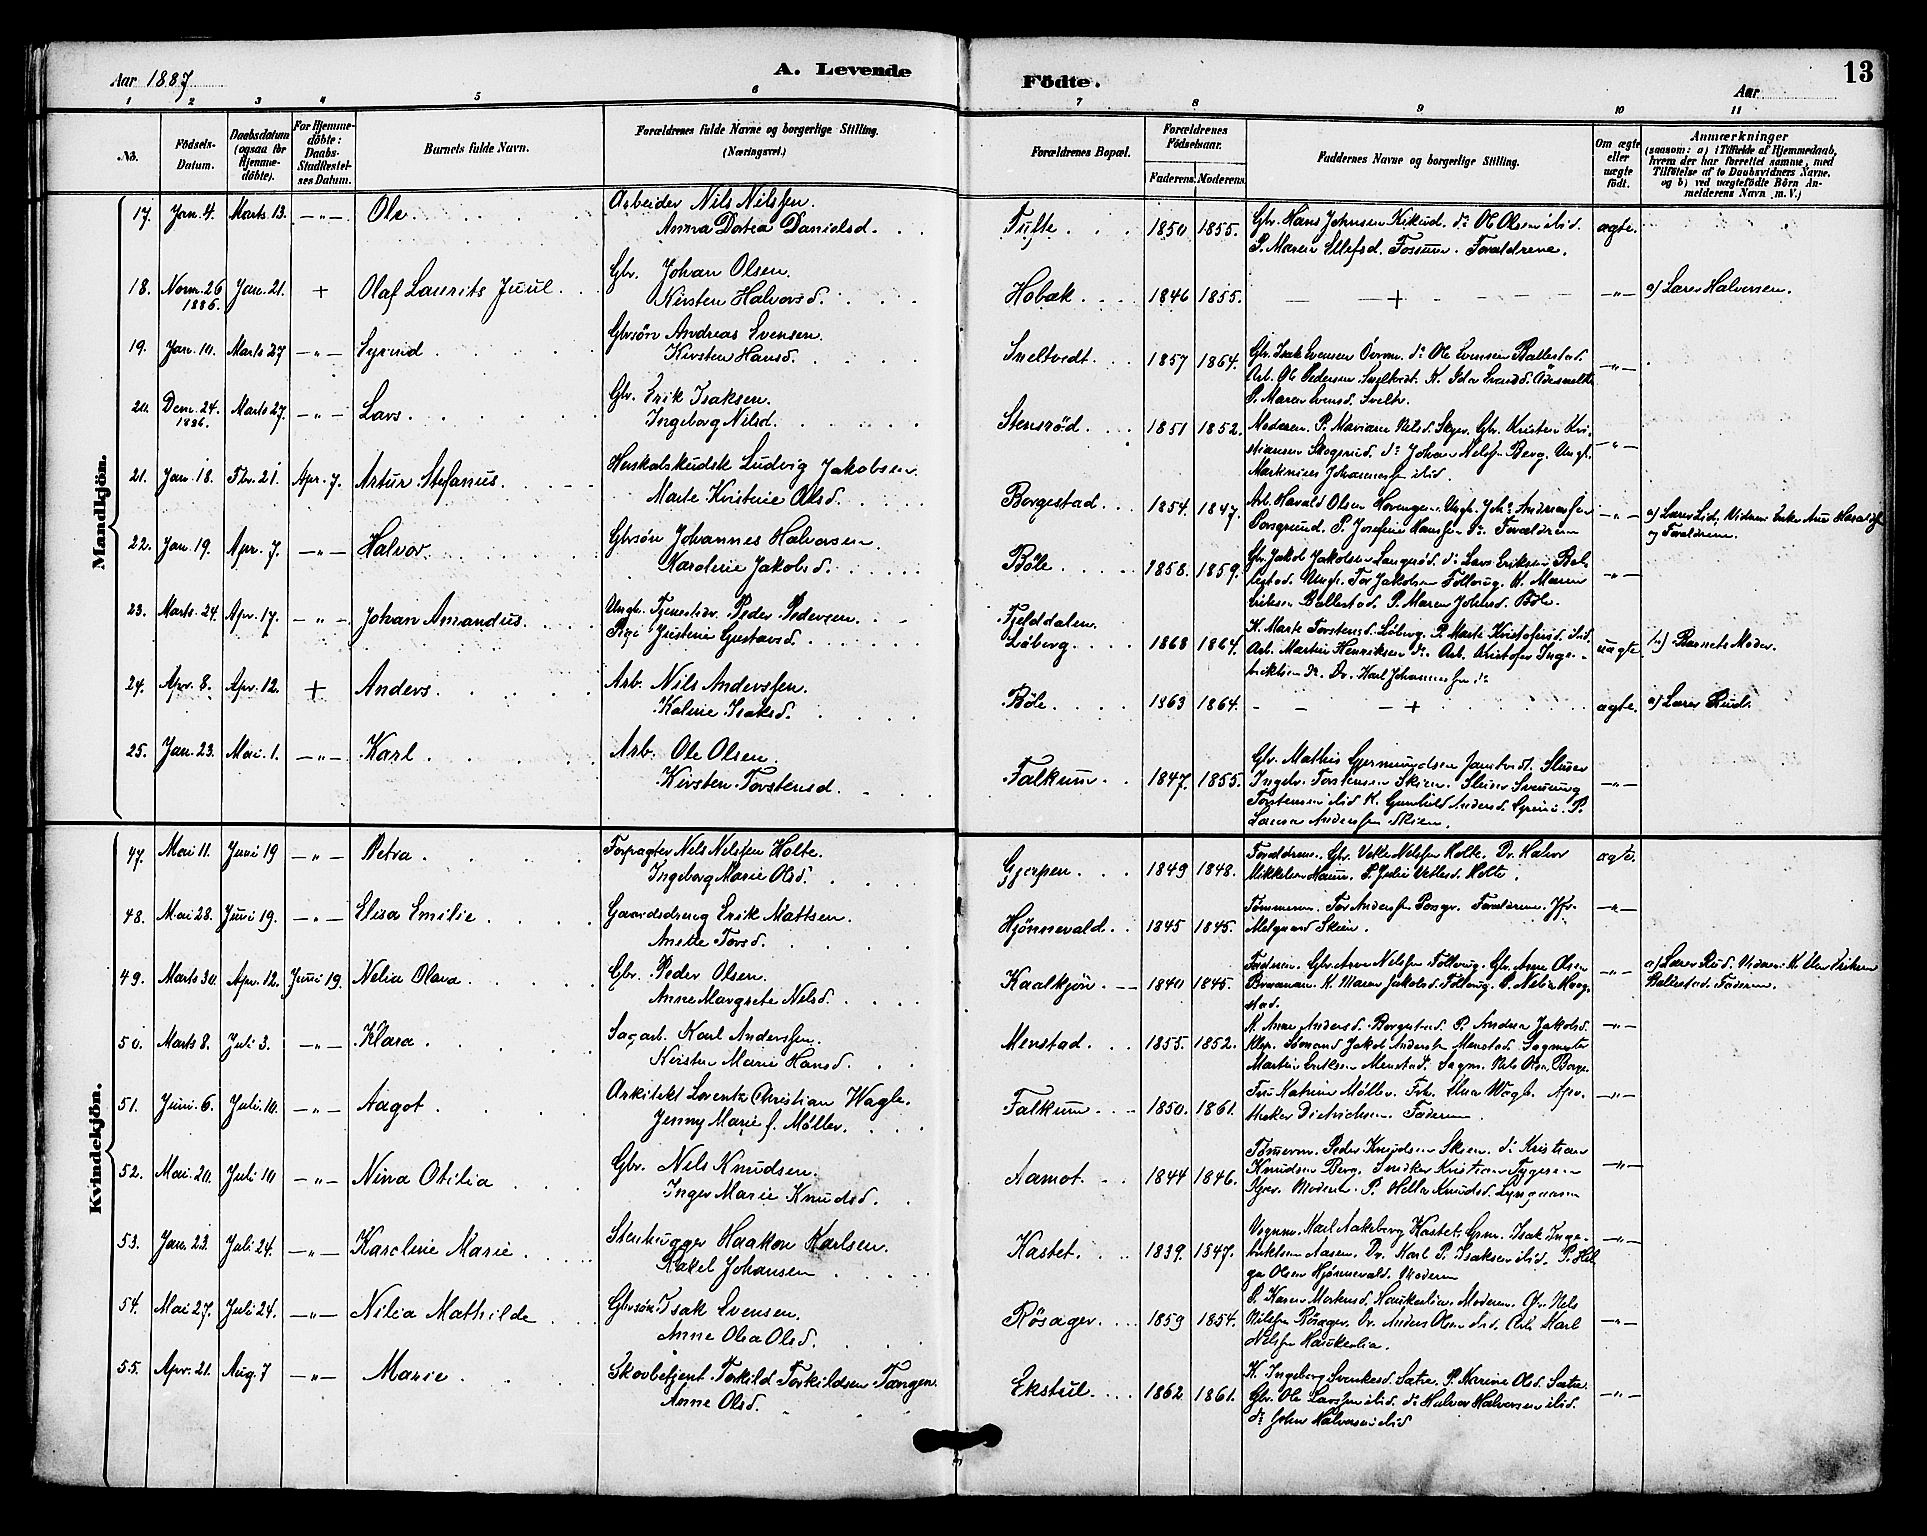 Aar 1887
A. Levende
Födte.
Aar
13
1 2 3 4 5 6 7 8 9 10 11
No.
Födsels-Datum.
Daabsdatum (ogsaa for Hjemme-döbte).
For Hjemme-döbte: Daabs-Stadfæstel-ses Datum.
Barnets fulde Navn.
Forældrenes fulde Navne og borgerlige Stilling. (Næringsvei.)
Forældrenes Bopæl.
Forældrenes Födselsaar.
Faderens. Moderens.
Faddernes Navne og borgerlige Stilling.
Om ægte eller uægte födt.
Anmærkninger
(saasom: a) i Tilfælde af Hjemmedaab, hvem der har forrettet samme, med Tilföielse af to Daabsvidners Navne, og b) ved uægtefödte Börn An-melderens Navn m. V.)
Mandkjön.
17. Jan. 4. Marts 13. —"— Ole. Arbeider Nils Nilssen.
Anna Dorea Danielsd.
Tufte. 1850 1855. Gbr. Hans Johnsen Kikud. do Ole Olsen ibid.
P. Maren Ellefsd. Fossum. Forældrene.
ægte.
18. Novm. 26 1886. Jan. 21. + Olaf Laurits Juul. Gbr. Johan Olsen.
Kirsten Halvorsd.
Hobæk. 1846 1855. — — + —"— a) Lærer Halvorsen.
19. Jan. 10. Marts 27 —"— Eyvind Gbrsön Andreas Evensen.
Kirsten Hansd.
Sneltvedt. 1857 1864. Gbr. Isak Evensen Överm. do Ole Evensen Ballestad.
Arb. Ole Pedersen Sneltvedt. K.
P. Maren Evensd.
—"—
20. Dem. 24. 1886. Marts 27. —"— Lars. Gbr. Erik Isaksen.
Ingeborg Nilsd.
Stensröd. 1851 1852. Moderen. P. Mariane Nilsd. Gbr. Kristen Kri-
stiansen do Johan Nilss. Berg. Ungk.
Johannessen ibid.
—"—
21. Jan. 18. Fbr. 21 Apr. 7. Artur Stefanus. Herskabskudsk Ludvig Jakobsen
Marte Kristine Olsd.
Borgestad. 1854. 1847. Arb. Harald Olsen Hovengen. Ungk. Joh. Andreassen
Porsgrund. P. Josefine Hansen do Forældrene
—"— a) Lærer Lid. Vidner: Enke Ane
og Forældrene.
22. Jan. 19. Apr. 7. —"— Halvor. Gbrsön Johannes Halvorsen.
Karoline Jakobsd.
Böle. 1858. 1859. Gbr. Jakob Jakobsen Langeröd. do Lars Eriksen Bal-
lestad. Ungk. Tor Jakobsen Follaug. K. Maren
Eriksen Ballestad. P. Maren Johnsd. Böle.
—"—
23. Marts. 24 Apr. 17. —"— Johan Amandus. Ungk. Tjenestdr. Peder Pedersen.
Pige Justine Gustavsd.
Fjelddalen.
Löberg. 1868 1864. K. Marte Torstensd. Löberg. P. Marte Kristofersd. ibid.
Arb. Martin Henriksen do. Arb. Kristofer Inge-
briktsen do. Dr. Karl Johannessen do
uægte. b) Barnets Moder.
24. Apr. 8. Apr. 12. + Anders. Arb. Nils Anderssen.
Kaline Isaksd.
Böle. 1863 1864. — — + ægte. a) Lærer Ruds.
25. Jan. 23. Mai. 1. —"— Karl. Arb. Ole Olsen.
Kirsten Torstensd.
Falkum. 1847. 1855. Gbr. Mathis Gjermundsen Jønsvedt. Sluser
Ingebr. Torstensen Skien. Sluser
Torstensen ibid. K. Gunhild Andersd. P.
Laura Anderssen Skien.
—"—
Kvindekjön.
47. Mai 11. Juni 19 —"— Petra. Forpagter Nils Nilssen Holte.
Ingeborg Marie Olsd.
Gjerpen. 1849 1848. Forældrene. Gbr. Vetle Nilssen Holte. Dr. Halvor
Mikkelsen P. Julie Vetlesd. Holte.
ægte.
48. Mai 28. Juni 19. —"— Elisa Emilie Gaardsdreng Erik Mattsen.
Anette Torsd.
Hjönnevald. 1845 1845. Tömmerm. Tor Anderssen Porsgr. Forældrene. Jfr.
Melgaard Skien.
—"—
49. Marts 30. Apr. 12. Juni 19. Nelia Olava Gbr. Peder Olsen.
Anne Margrete Nilsd.
Kaalkjön. 1840 1845. Faderen. Gbr. Arne Nilssen Follaug. Gbr. Arne Olsen
K. Maren Jakobsd. Follaug. P. Nelia
stad.
—"— a) Lærer Rud. Vidner: K. Eriksen
Ballestad. Faderen.
50. Marts 8. Juli 3. —"— Klara. Sagarb. Karl Anderssen.
Kirsten Marie Hansd.
Menstad. 1855. 1852. K. Anne Andersd. Borgestad. P. Andrea Jakobsd.
Jakob Anderssen Menstad. Sagmester
Martin Eriksen Menstad. Sagm. Nils Olsen Borge.
—"—
51. Juni. 6. Juli. 10. —"— Aagot. Arkitekt Lorentz Christian Wagle.
Jenny Marie f. Möller.
Falkum. 1850. 1861. Fru Katrine Möller. Frk. Wagle. Apo-
theker Dietrichsen. Faderen
—"—
52. Mai. 20. Juli 10 —"— Nina Otilia Gbr. Nils Knudsen.
Inger Marie Knudsd.
Aamot. 1844 1846. Tömerm. Peder Knudsen Skien. do Kristian
Knudsen Berg. Snedker Kristian Tygesen
Moderen. P. Helle Knudsd.
—"—
53. Jan. 23. Juli 24. —"— Karoline Marie Stenhugger Haakon Karlsen.
Rakel Johansen
Kastet. 1839. 1847. Vognm. Karl Aakeberg Kastet. Gbm. Isak Inge-
briktsen Aasen. Dr. Karl P. Isaksen ibid. P. Hel-
ga Olsen Hjönnevald. Moderen
—"—
54. Mai 27. Juli 24. —"— Nilia Mathilde Gbrsön Isak Evensen.
Anne Olea Olsd.
Rösager. 1859 1854. P. Karen Mortensd. Haukerlia. Moderen. Gbr. Nils
Nilssen Rösager. Dr. Anders Olsen ibid. Arb. Karl
Nilssen Haukerlia.
—"—
55. Apr. 21. Aug. 7 —"— Marie Skovbetjent Torkild Torkildsen Tangen
Anne Olsd.
Ekstul. 1862 1861. K. Ingeborg Svenkesd. Sætre. P. Karine Olsd. Sætre.
Gbr. Ole Larssen ibid. do Halvor Halvorsen ibid.
do John Halvorsen ibid
—"—